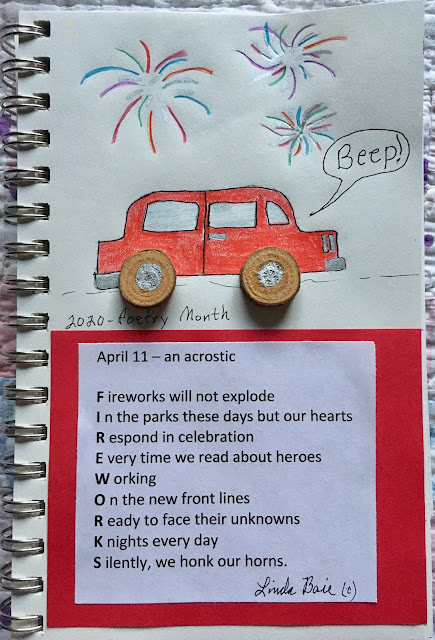 Beep!
2020-Poetry Month
April 11 – an acrostic
F ireworks will not explode
I n the parks these days but our hearts
R espond in celebration
E very time we read about heroes
W orking
O n the new front lines
R eady to face their unknowns
K nights every day
S ilently, we honk our horns.
Linda Baie (c)